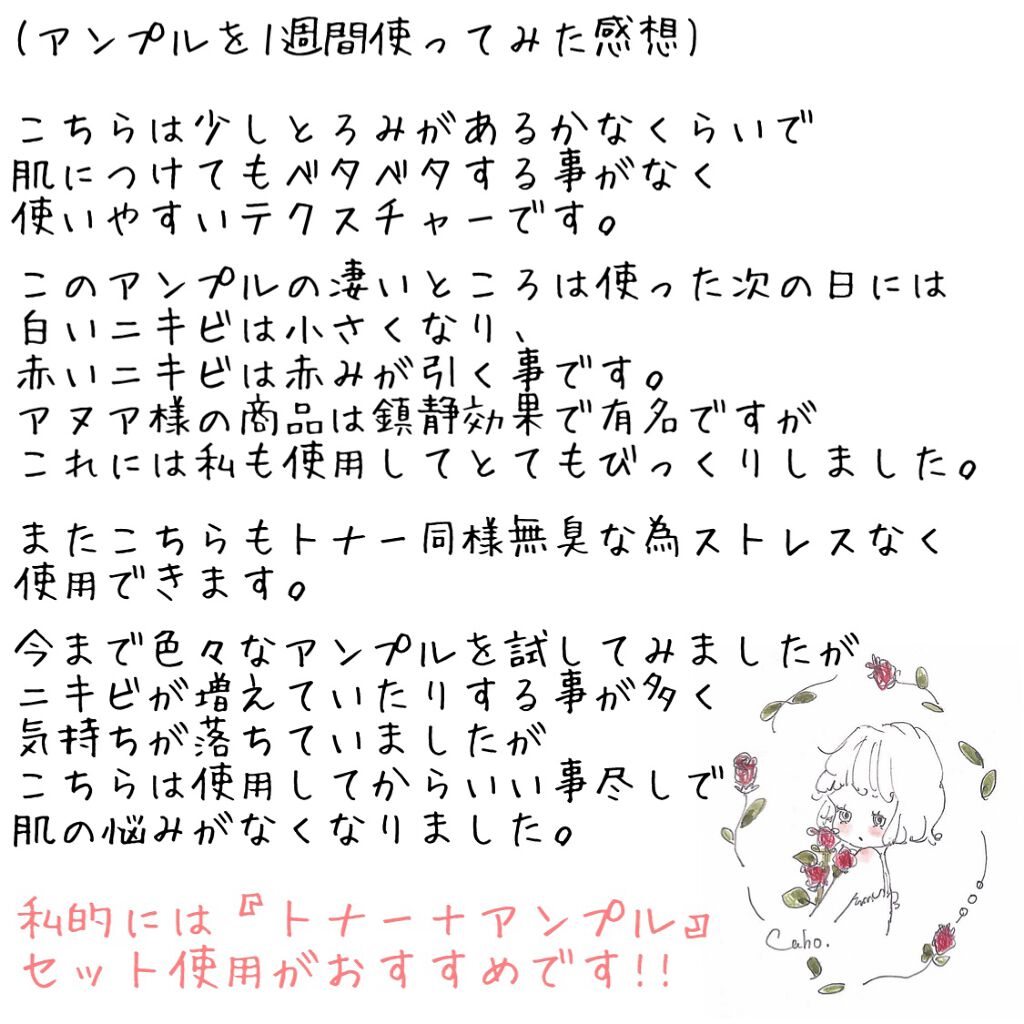 (アンプルを1週間使ってみた感想)
こちらは少しとろみがあるかなくらいで
肌につけてもベタベタする事がなく
使いやすいテクスチャーです。
このアンプルの凄いところは使った次の日には
白いニキビは小さくなり、
赤いニキビは赤みが引く事です。
アヌア様の商品は鎮静効果で有名ですが
これには私も使用してとてもびっくりしました。
またこちらもトナー同様無臭な為ストレスなく
使用できます。
今まで色々なアンプルを試してみましたが
ニキビが増えていたりする事が多く
気持ちが落ちていましたが
こちらは使用してからいい事尽しで
肌の悩みがなくなりました。
私的には『トナー+アンプル』
セット使用がおすすめです!!
Caho.